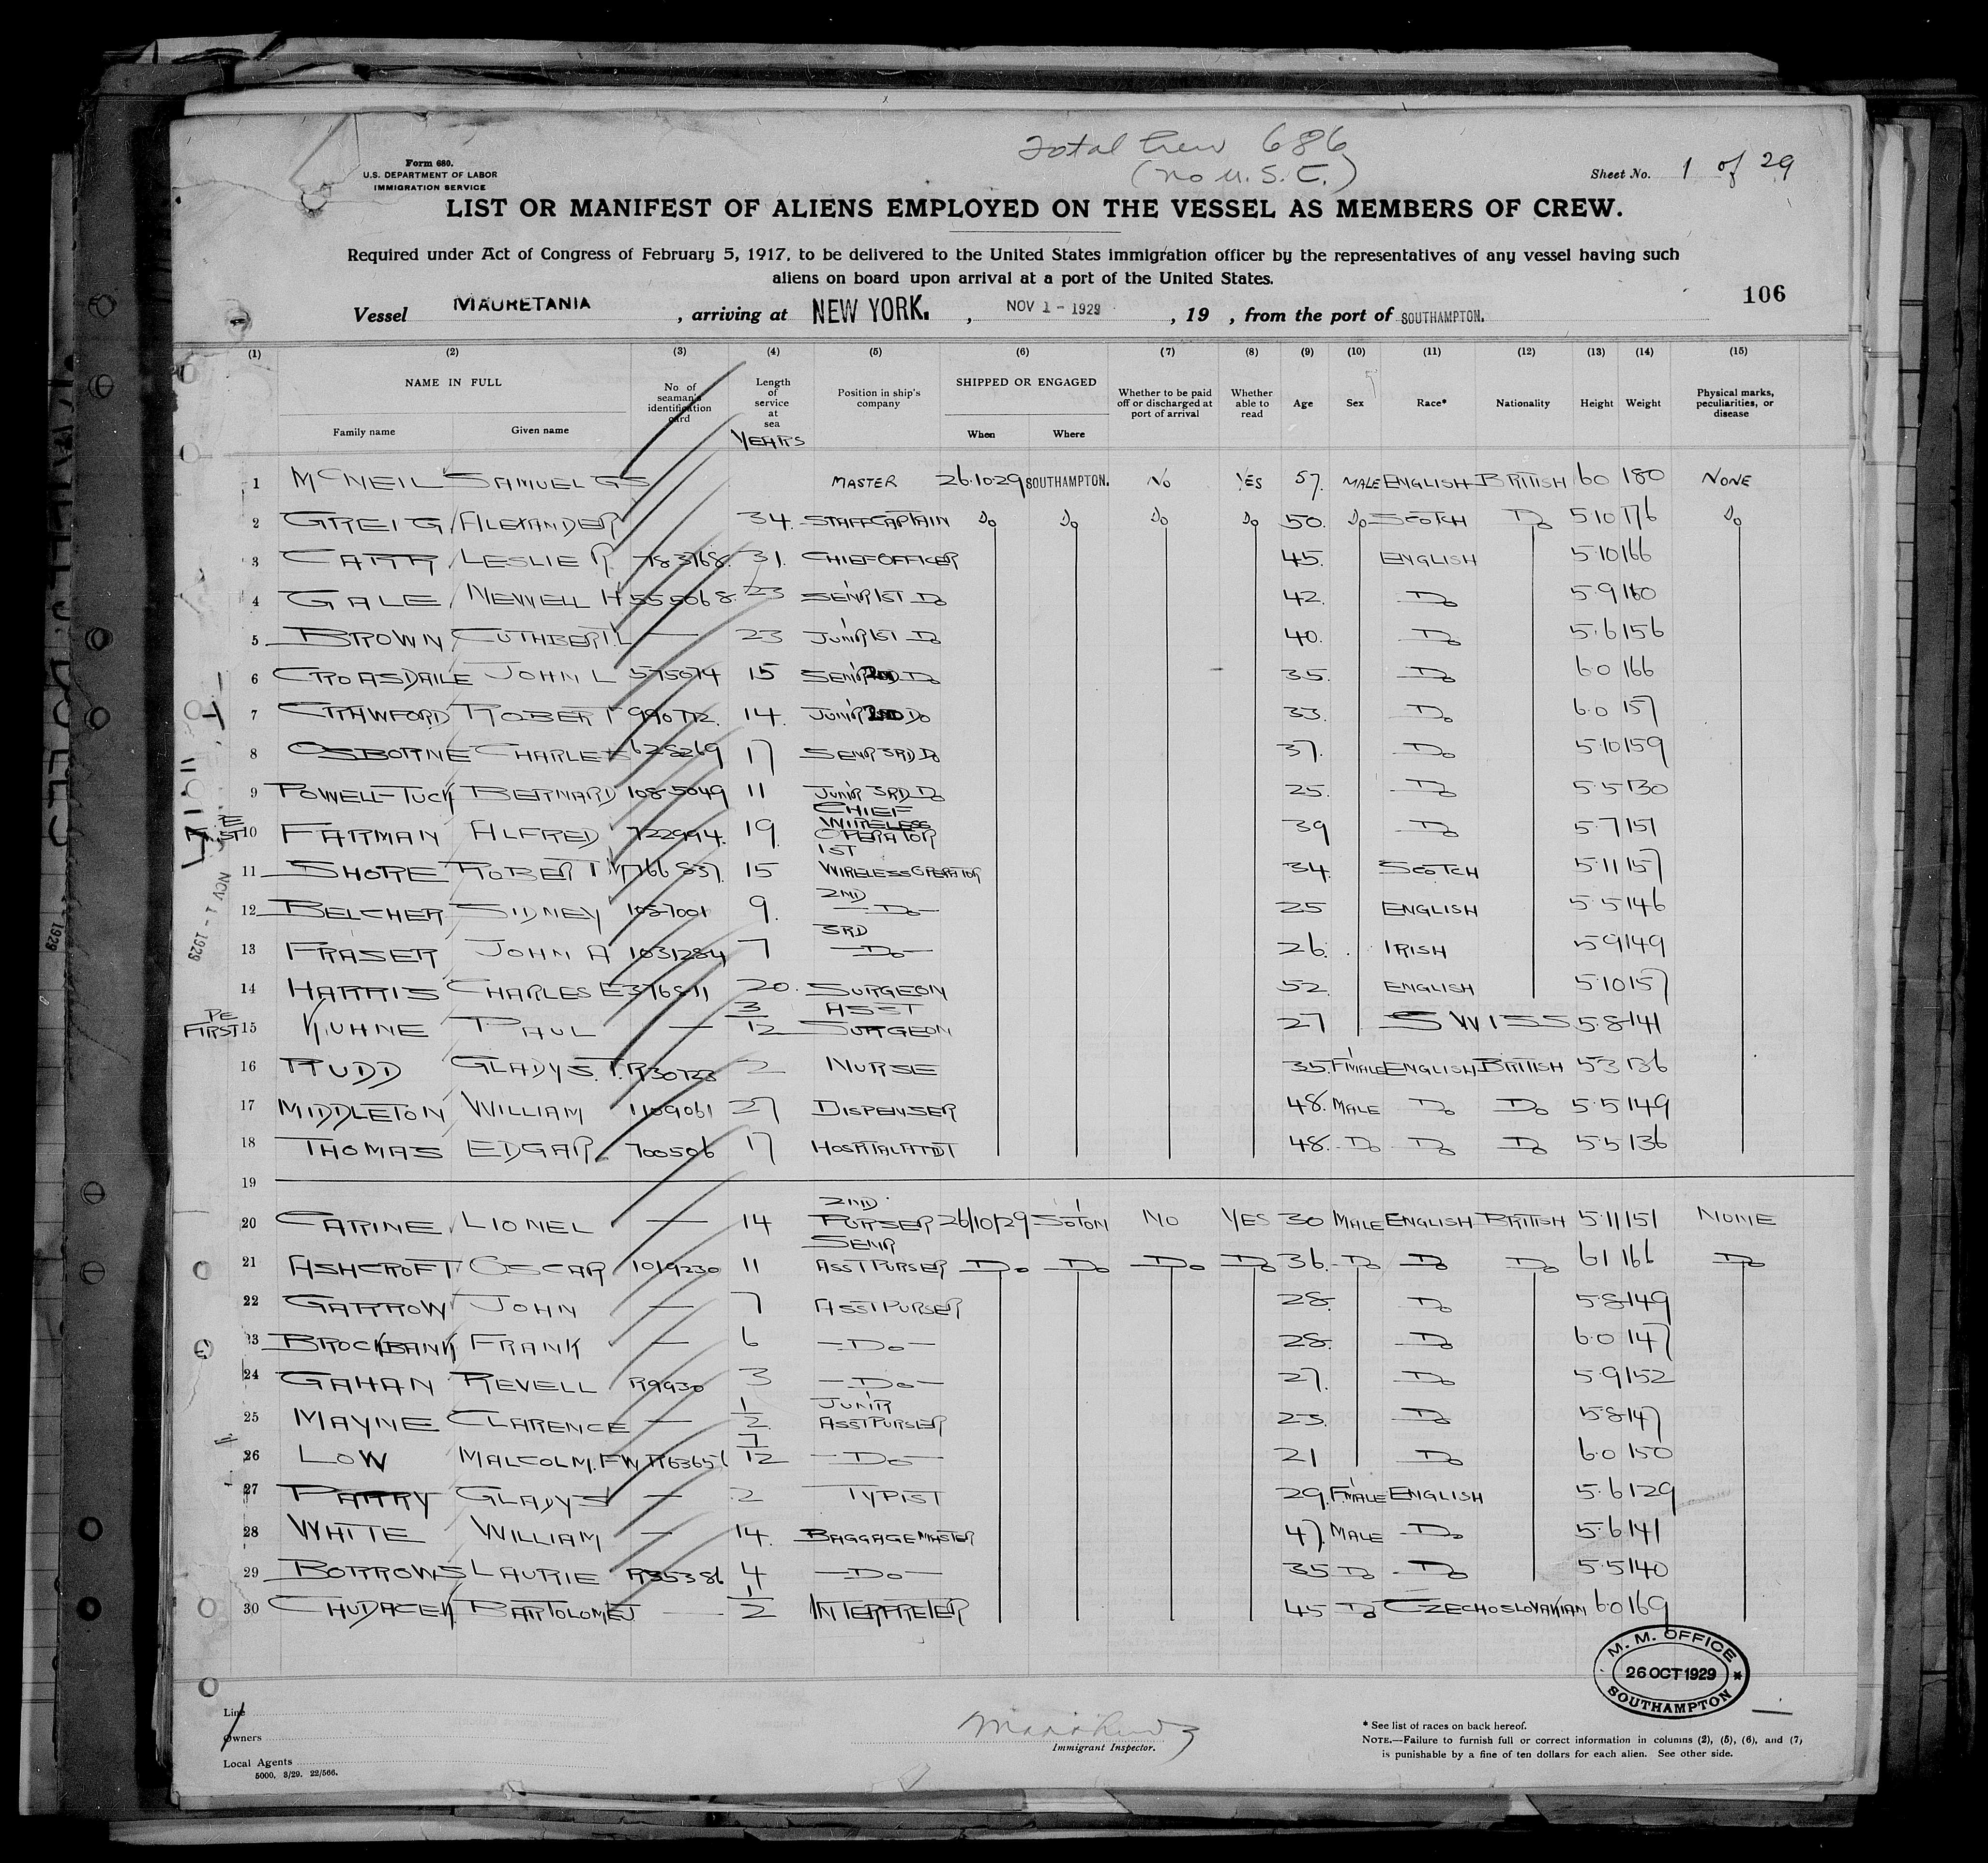 Total Crew 686
(no U.S.C.)
Form 680.
U.S. DEPARTMENT OF LABOR
IMMIGRATION SERVICE
Sheet No. 1 of 29
LIST OR MANIFEST OF ALIENS EMPLOYED ON THE VESSEL AS MEMBERS OF CREW.
Required under Act of Congress of February 5, 1917, to be delivered to the United States immigration officer by the representatives of any vessel having such
aliens on board upon arrival at a port of the United States.
106
Vessel MAURETANIA , arriving at NEW YORK. , NOV 1 - 1929 , 19 , from the port of SOUTHAMPTON.
(1) (2) (3) (4) (5) (6) (7) (8) (9) (10) (11) (12) (13) (14) (15)
NAME IN FULL Family name Given name
No of seaman's identification card
Length of service at sea YEARS
Position in ship's company
SHIPPED OR ENGAGED When Where
Whether to be paid off or discharged at port of arrival
Whether able to read
Age Sex Race* Nationality Height Weight
Physical marks, peculiarities, or disease
1 McNEIL SAMUEL G S MASTER 26.10.29 SOUTHAMPTON. No YES 57. MALE ENGLISH BRITISH 6 0 180 NONE
2 GREIG ALEXANDER 34. STAFF CAPTAIN Do Do Do Do 50. Do SCOTCH Do 5 10 176 Do
3 CARR LESLIE R 783768. 31. CHIEF OFFICER 45. ENGLISH 5.10 166
4 GALE NEWELL H 555068 23 SENR 1ST Do 42. Do 5.9 160
5 BROWN CUTHBERT L — 23 JUNR 1ST Do 40. Do 5.6 156
6 CROASDAILE JOHN L 575074 15 SENR 2ND Do 35. Do 6.0 166
7 CRAWFORD ROBERT 990772. 14. JUNR 2ND Do 33. Do 6.0 157
8 OSBORNE CHARLES 628269 17 SENR 3RD Do 37. Do 5.10 159
9 POWELL-TUCK BERNARD 1085049 11 JUNR 3RD Do 25. Do 5.5 130
10 FARMAN ALFRED 722994. 19. CHIEF WIRELESS OPERATOR 39 Do 5.7 151
11 SHORE ROBERT W 766837. 15 1ST WIRELESS OPERATOR 34. SCOTCH 5.11 157
12 BELCHER SIDNEY 1057001 9. 2ND —Do— 25 ENGLISH 5.5 146
13 FRASER JOHN A 1031284 7 3RD —Do— 26. IRISH 5 9 149
14 HARRIS CHARLES E 376811 20. SURGEON 52. ENGLISH 5.10 157
PE FIRST 15 KUHNE PAUL — 3/12 ASST SURGEON 27 SWISS 5.8 141
16 RUDD GLADYS. T. R30723 2 NURSE 35. F'MALE ENGLISH BRITISH 5 3 136
17 MIDDLETON WILLIAM 1109061 27 DISPENSER 48. MALE Do Do 5.5 149
18 THOMAS EDGAR 700506 17 HOSPITAL ATTDT 48. Do Do Do 5.5 136
19
20 CARINE LIONEL — 14 2ND PURSER 26/10/29 SOTON NO YES 30 MALE ENGLISH BRITISH 5.11 151 NONE
21 ASHCROFT OSCAR 1019230 11 SENR ASST PURSER Do Do Do Do 36. Do Do Do 6 1 166 Do
22 GARROW JOHN — 7 ASST PURSER 28. Do 5.8 149
23 BROCKBANK FRANK — 6 —Do— 28. Do 6.0 147
24 GAHAN REVELL R9930 3 —Do— 27. Do 5.9 152
25 MAYNE CLARENCE — 1/2 JUNR ASST PURSER 23. Do 5.8 147
26 LOW MALCOLM. F W R63651 7/12 —Do— 21 Do 6.0 150
27 PARRY GLADYS — 2 TYPIST 29. F'MALE ENGLISH 5.6 129
28 WHITE WILLIAM — 14. BAGGAGE MASTER 47. MALE Do 5.6 141
29 BORROWS LAURIE R35386 4 —Do— 35 Do Do 5.5 140
30 CHUDACEK BARTOLOMEJ — 1/2 INTERPRETER 45 Do CZECHOSLOVAKIAN 6.0 169
NOV 1 - 1929
M. M. OFFICE
26 OCT 1929
SOUTHAMPTON
Line
Owners
Local Agents
5000, 3/29. 22/566.
Immigrant Inspector.
* See list of races on back hereof.
NOTE.—Failure to furnish full or correct information in columns (2), (5), (6), and (7)
is punishable by a fine of ten dollars for each alien. See other side.